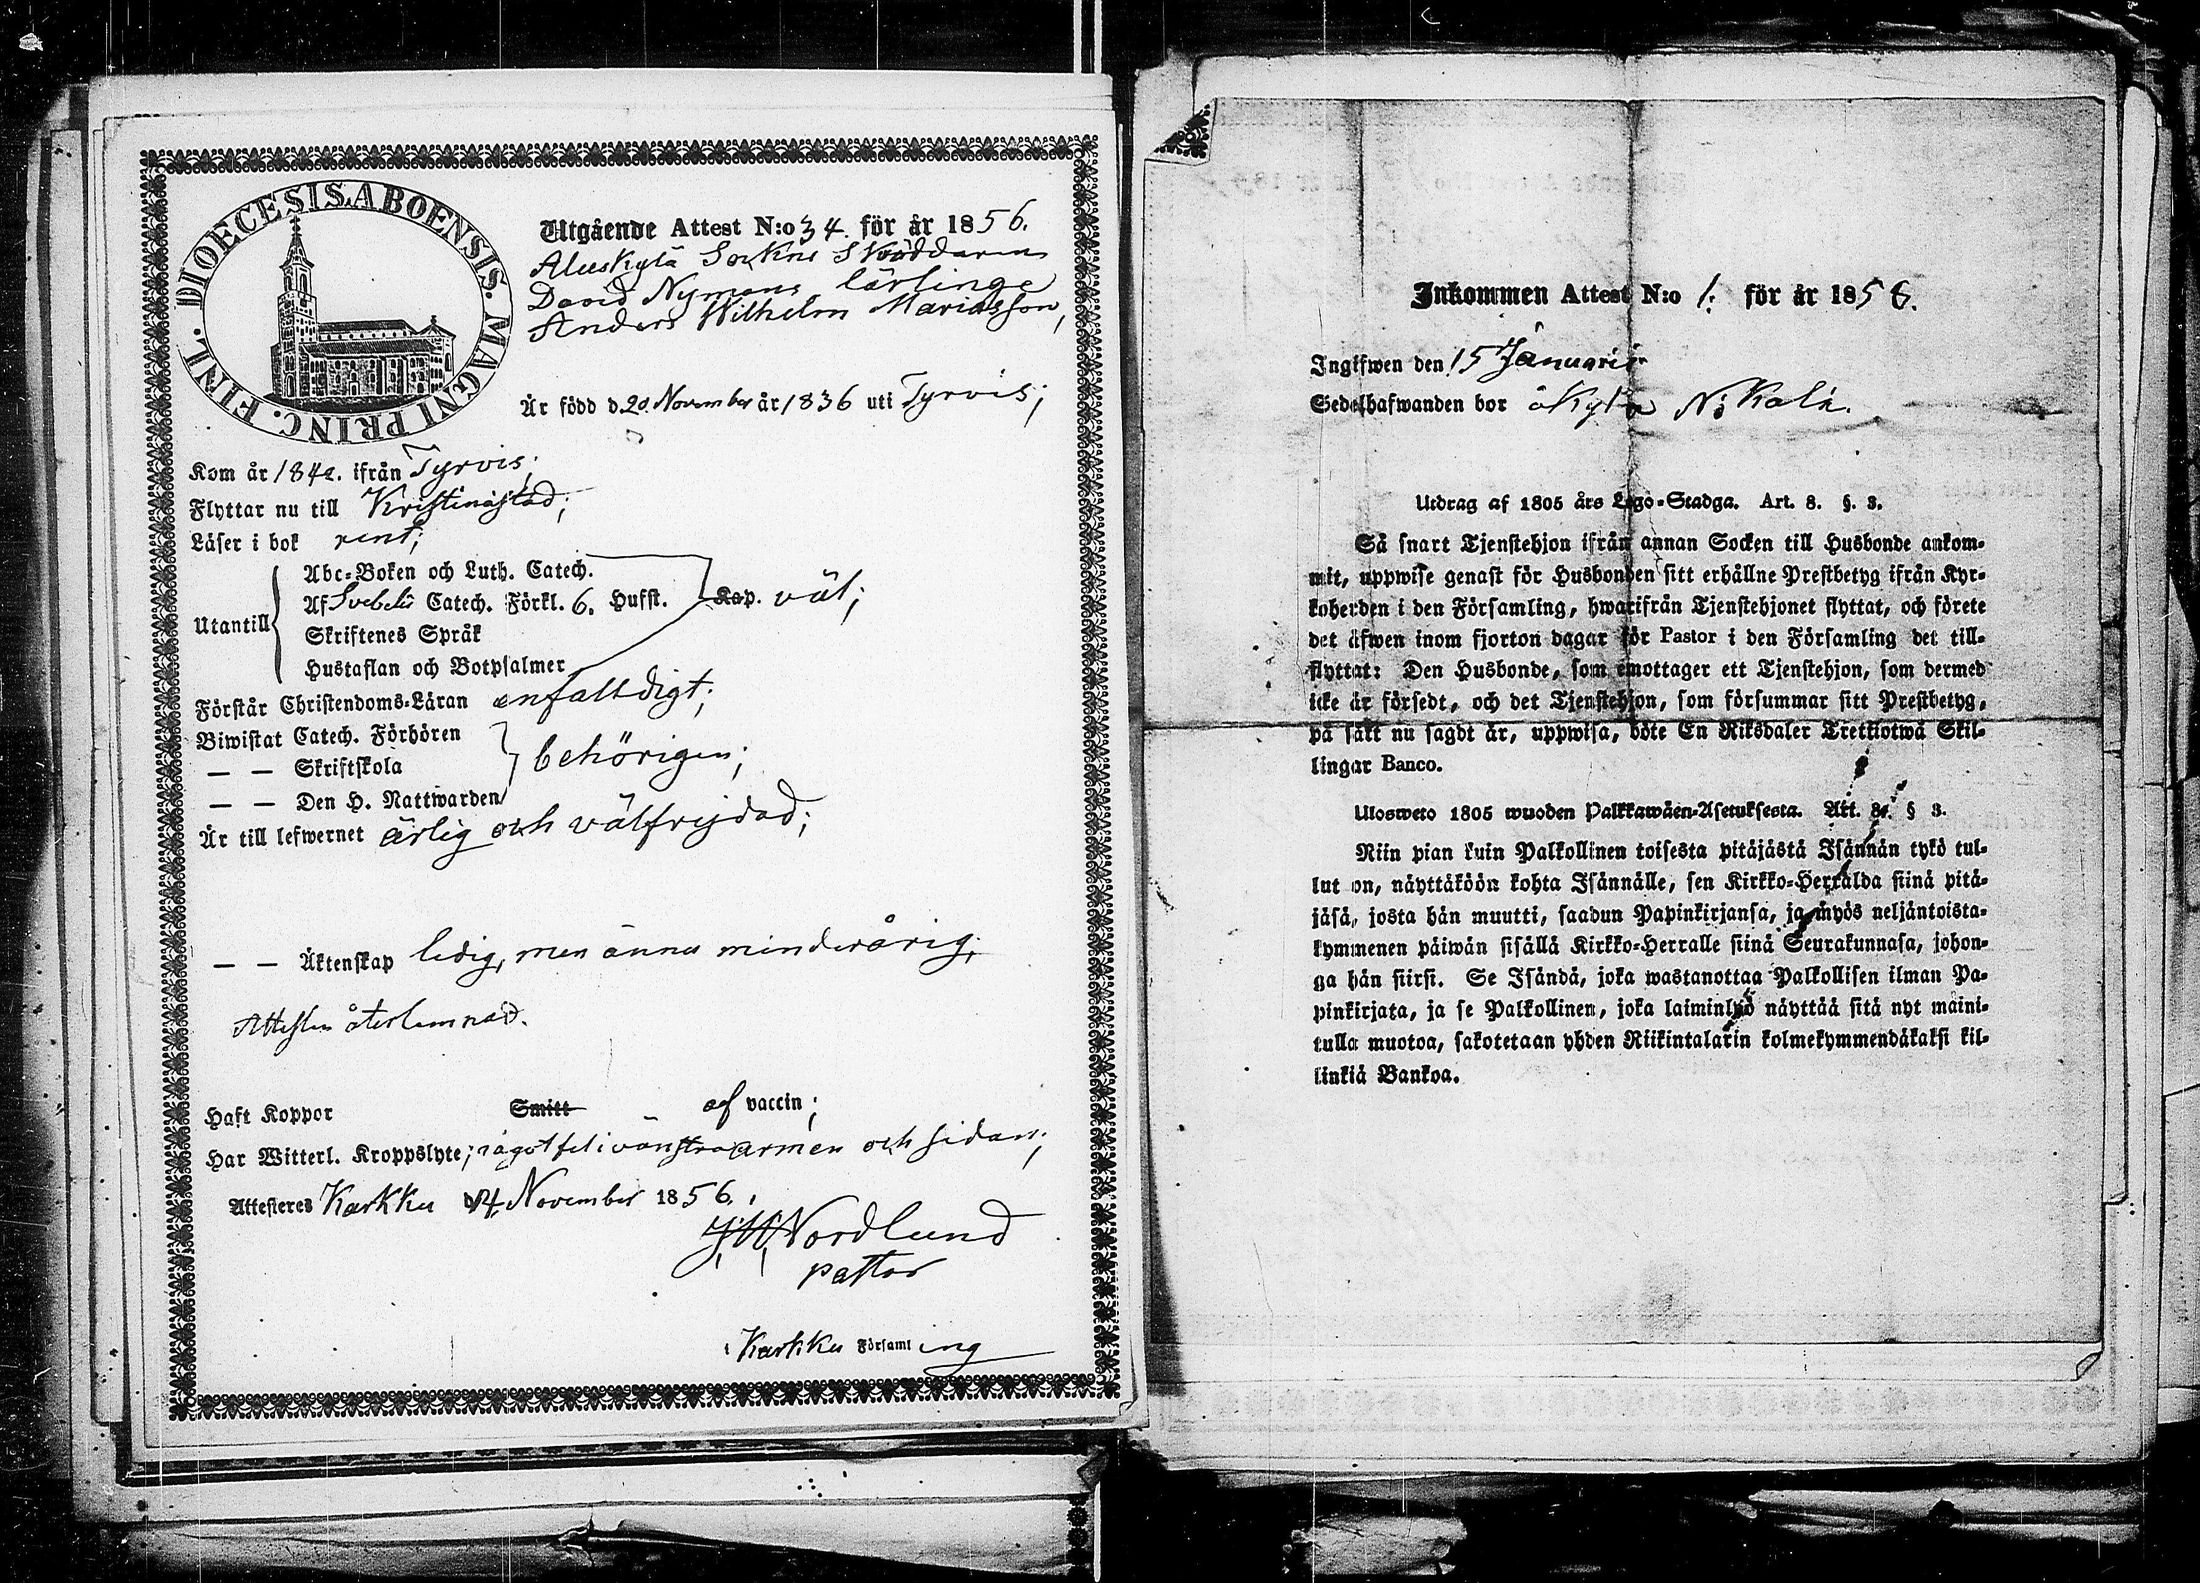 DIOECESIS. ABOENSIS. MAGNI PRINC. FINL.
Utgående Attest N:o 34. för år 1856.
Aluskylä Sockne Skräddaren
David Nymans lärlinge
Anders Wilhelm Mariasson,
Är född d. 20 November år 1836 uti Tyrvis;
Kom år 1842. ifrån Tyrvis;
Flyttar nu till Kristinastad;
Läser i bok rent;
Utantill
Abc-Boken och Luth. Catech.
Af Svebelii Catech. Förkl. 6. Husst. Kap. väl;
Skriftenes Språk
Hustaflan och Botpsalmer
Förstår Christendoms-Läran enfalldigt;
Biwistat Catech. Förhören
— — Skriftskola behörigen;
— — Den H. Nattwarden
Är till lefwernet ärlig och välfrejdad;
— — Äktenskap ledig, men ännu minderårig;
Attesten återlemnad.
Haft Koppor Smitt af vaccin;
Har Witterl. Kroppslyte; något fel i vänstra armen och sidan;
Attesteras Karkku d. 4. November 1856.
Nordlund
pastor
i Karkku Församling
Inkommen Attest N:o 1. för år 1856.
Ingifwen den 15 Januarii
Sedelhafwanden bor
Utdrag af 1805 års Lego-Stadga. Art. 8. §. 3.
Så snart Tjenstehjon ifrån annan Socken till Husbonde ankom-
mit, uppwise genast för Husbonden sitt erhållne Prestbetyg ifrån Kyr-
koherden i den Församling, hwarifrån Tjenstehjonet flyttat, och förete
det äfwen inom fjorton dagar för Pastor i den Församling det till-
flyttat: Den Husbonde, som emottager ett Tjenstehjon, som dermed
icke är försedt, och det Tjenstehjon, som försummar sitt Prestbetyg,
på sätt nu sagdt är, uppwisa, böte En Riksdaler Trettiotwå Skil-
lingar Banco.
Ulosweto 1805 wuoden Palkkawäen-Asetuksesta. Art. 8. § 3.
Niin pian kuin Palkollinen toisesta pitäjästä Isännän tykö tul-
lut on, näyttäköön kohta Isännälle, sen Kirkko-Herralda siinä pitä-
jäsä, josta hän muutti, saadun Papinkirjansa, ja myös neljäntoista-
kymmenen päiwän sisällä Kirkko-Herralle siinä Seurakunnasa, johon-
ga hän siirsi. Se Isändä, joka wastanottaa Palkollisen ilman Pa-
pinkirjata, ja se Palkollinen, joka laiminlyö näyttää sitä nyt maini-
tulla muotoa, sakotetaan yhden Riikintalarin kolmekymmendäkaksi kil-
linkiä Bankoa.